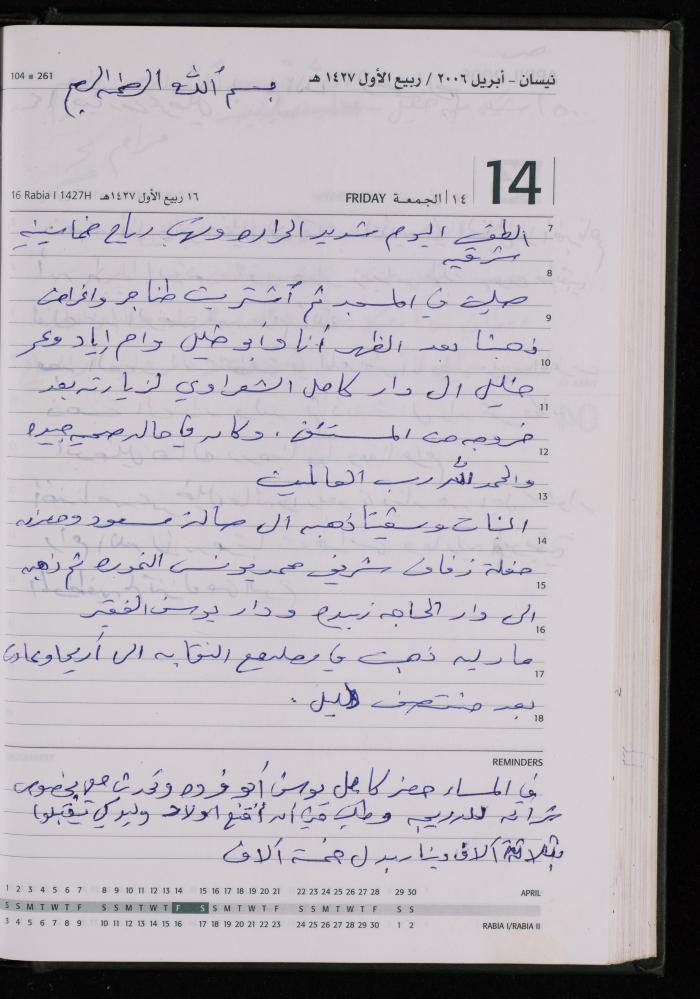 104 ■ 261
نيسان - أبريل ٢٠٠٦ / ربيع الأول ١٤٢٧ هـ
بسم الله الرحمن الرحيم
14
16 Rabia I 1427H
١٦ ربيع الأول ١٤٢٧هـ
FRIDAY الجمعة | ١٤
7
الطقس اليوم شديد الحراره وتهب رياح خماسينيه
شرقيه
8
صليت في المسجد ثم أشتريت طناجر واغراض
9
ذهبنا بعد الظهر أنا وأبو خليل وام اياد وعمر
10
خليل الى دار كامل الشعراوي لزيارته بعد
11
خروجه من المستشفى، وكان في حاله صحيه جيده
12
والحمد لله رب العالمين
13
البنات وستنا ذهبن الى صالة مسعود وحضرن
14
حفلة زفاف شريف محمد يونس النموره ثم ذهبن
15
الى دار الحاجه زبيده ودار يوسف الفقير
16
ماريه ذهبت في مع النقابه الى أريحا وعادت
17
بعد منتصف الليل .
18
REMINDERS
في المساء حضر كامل يوسف أبو فروه وتحدث معي بخصوص
شرائه للدريجه وطلب مني أن أقنع الاولاد وليد كي يقبلوا
بثلاثة آلاف دينار بدل خمسة آلاف
1 2 3 4 5 6 7 8 9 10 11 12 13 14 15 16 17 18 19 20 21 22 23 24 25 26 27 28 29 30 APRIL
S S M T W T F S S M T W T F S S M T W T F S S M T W T F S S
3 4 5 6 7 8 9 10 11 12 13 14 15 16 17 18 19 20 21 22 23 24 25 26 27 28 29 30 1 2 RABIA I/RABIA II